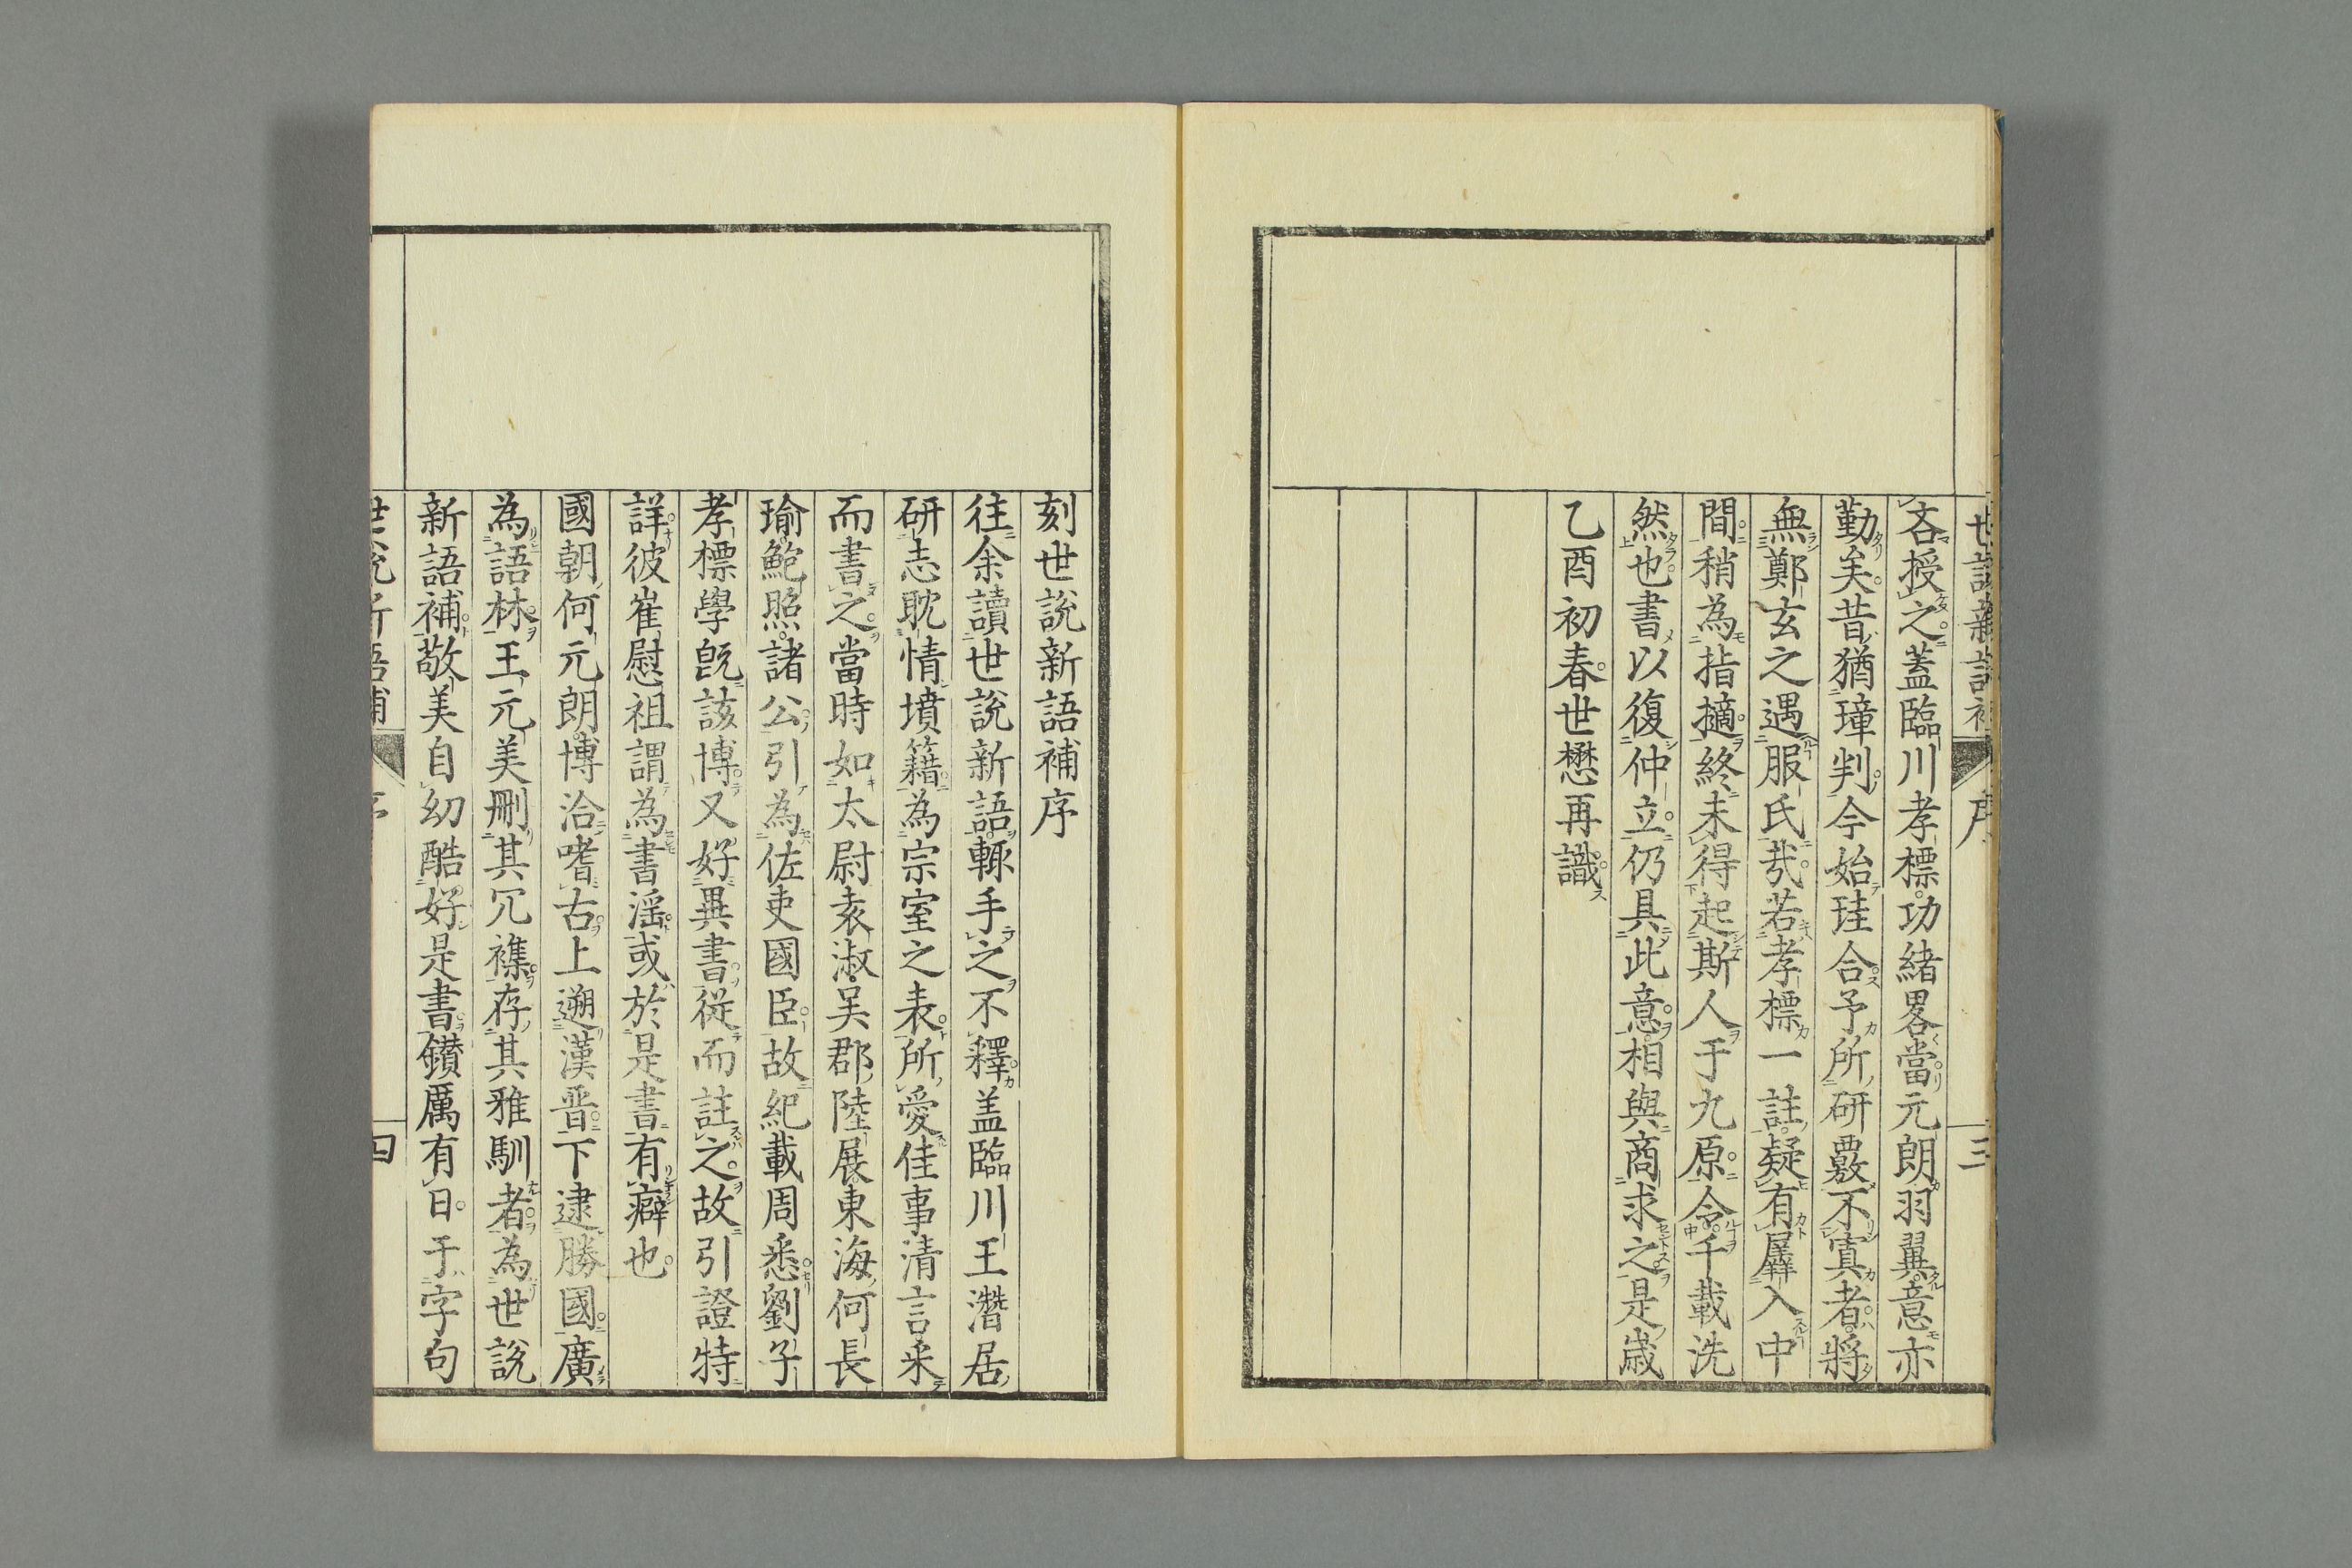 世說新語補 序 三
吝授之蓋臨川孝標功緒畧當元朗羽翼意亦
勤矣昔猶璋判今始珪合予所研覈不寘者將
無鄭玄之遇服氏㢤若孝標一註疑有羼入中
間稍為指擿終未得起斯人于九原令千載洗
然也書以復仲立仍具此意相與商求之是歲
乙酉初春世懋再識
刻世說新語補序
往余讀世說新語輙手之不釋盖臨川王潛居
研志耽情墳籍為宗室之表所愛佳事清言采
而書之當時如太尉袁淑吳郡陸展東海何長
瑜鮑照諸公引為佐吏國臣故紀載周悉劉子
孝標學旣該博又好異書從而註之故引證特
詳彼崔慰祖謂為書滛或於是書有癖也
國朝何元朗博洽嗜古上遡漢晋下逮勝國廣
為語林王元美刪其冗襍存其雅馴者為世說
新語補敬美自幼酷好是書鑚厲有日于字句
世說新語補 序 四